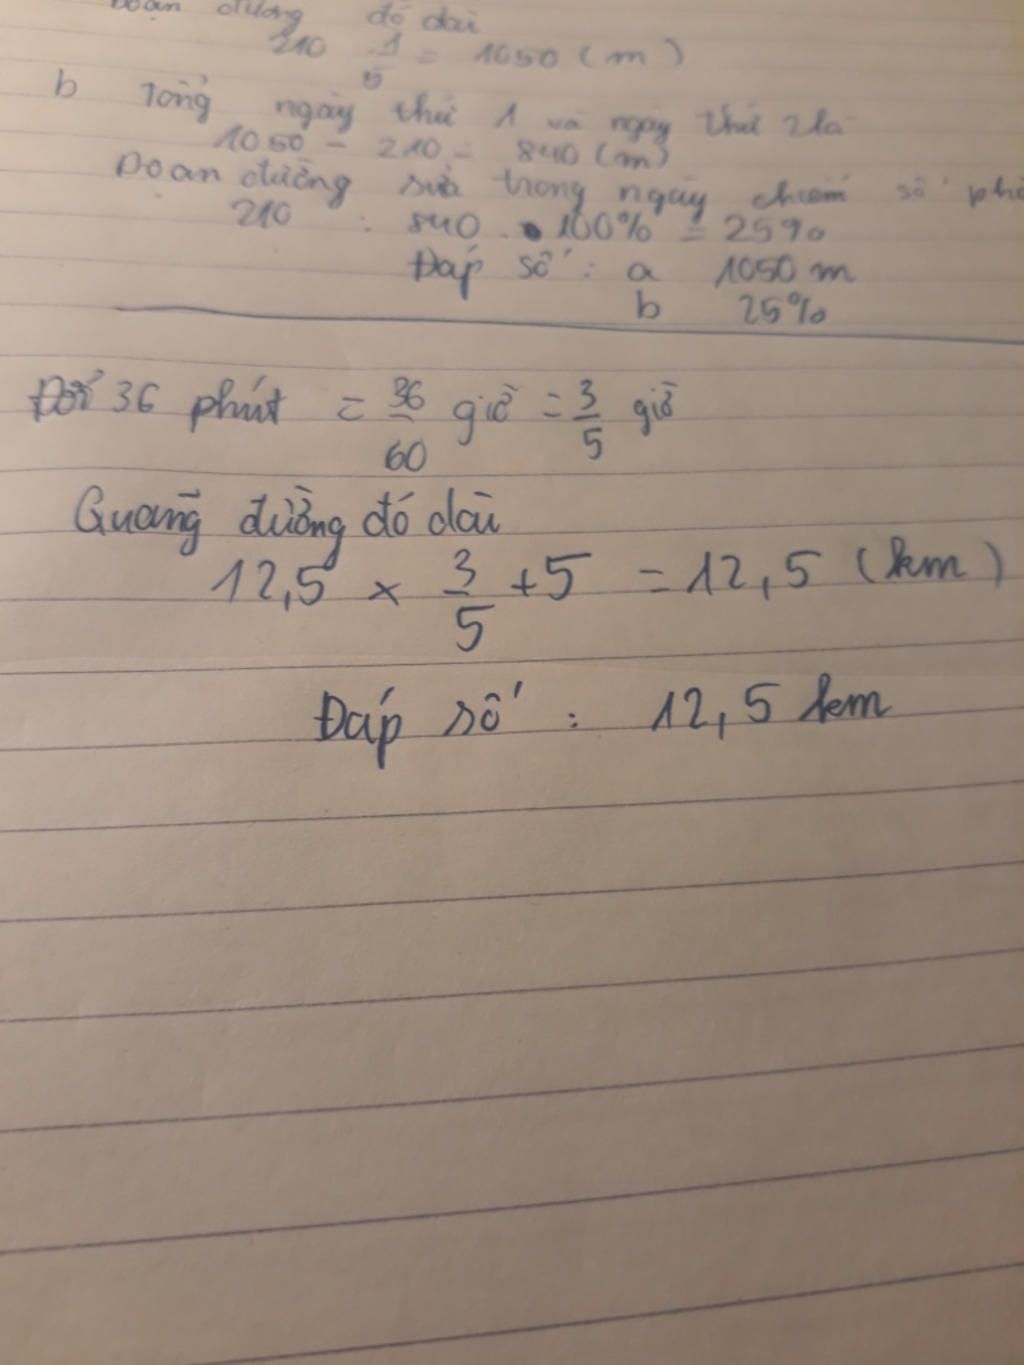 đoạn đường đó dài
210 : 1/5 = 1050 (m)
b Tổng ngày thứ 1 và ngày thứ 2 là
1050 - 210 = 840 (m)
Đoạn đường sửa trong ngày chiếm số
210 : 840 . 100% = 25%
Đáp số : a 1050 m
b 25%
Đổi 36 phút = 36/60 giờ = 3/5 giờ
Quãng đường đó dài
12,5 × 3/5 + 5 = 12,5 (km)
Đáp số : 12,5 km